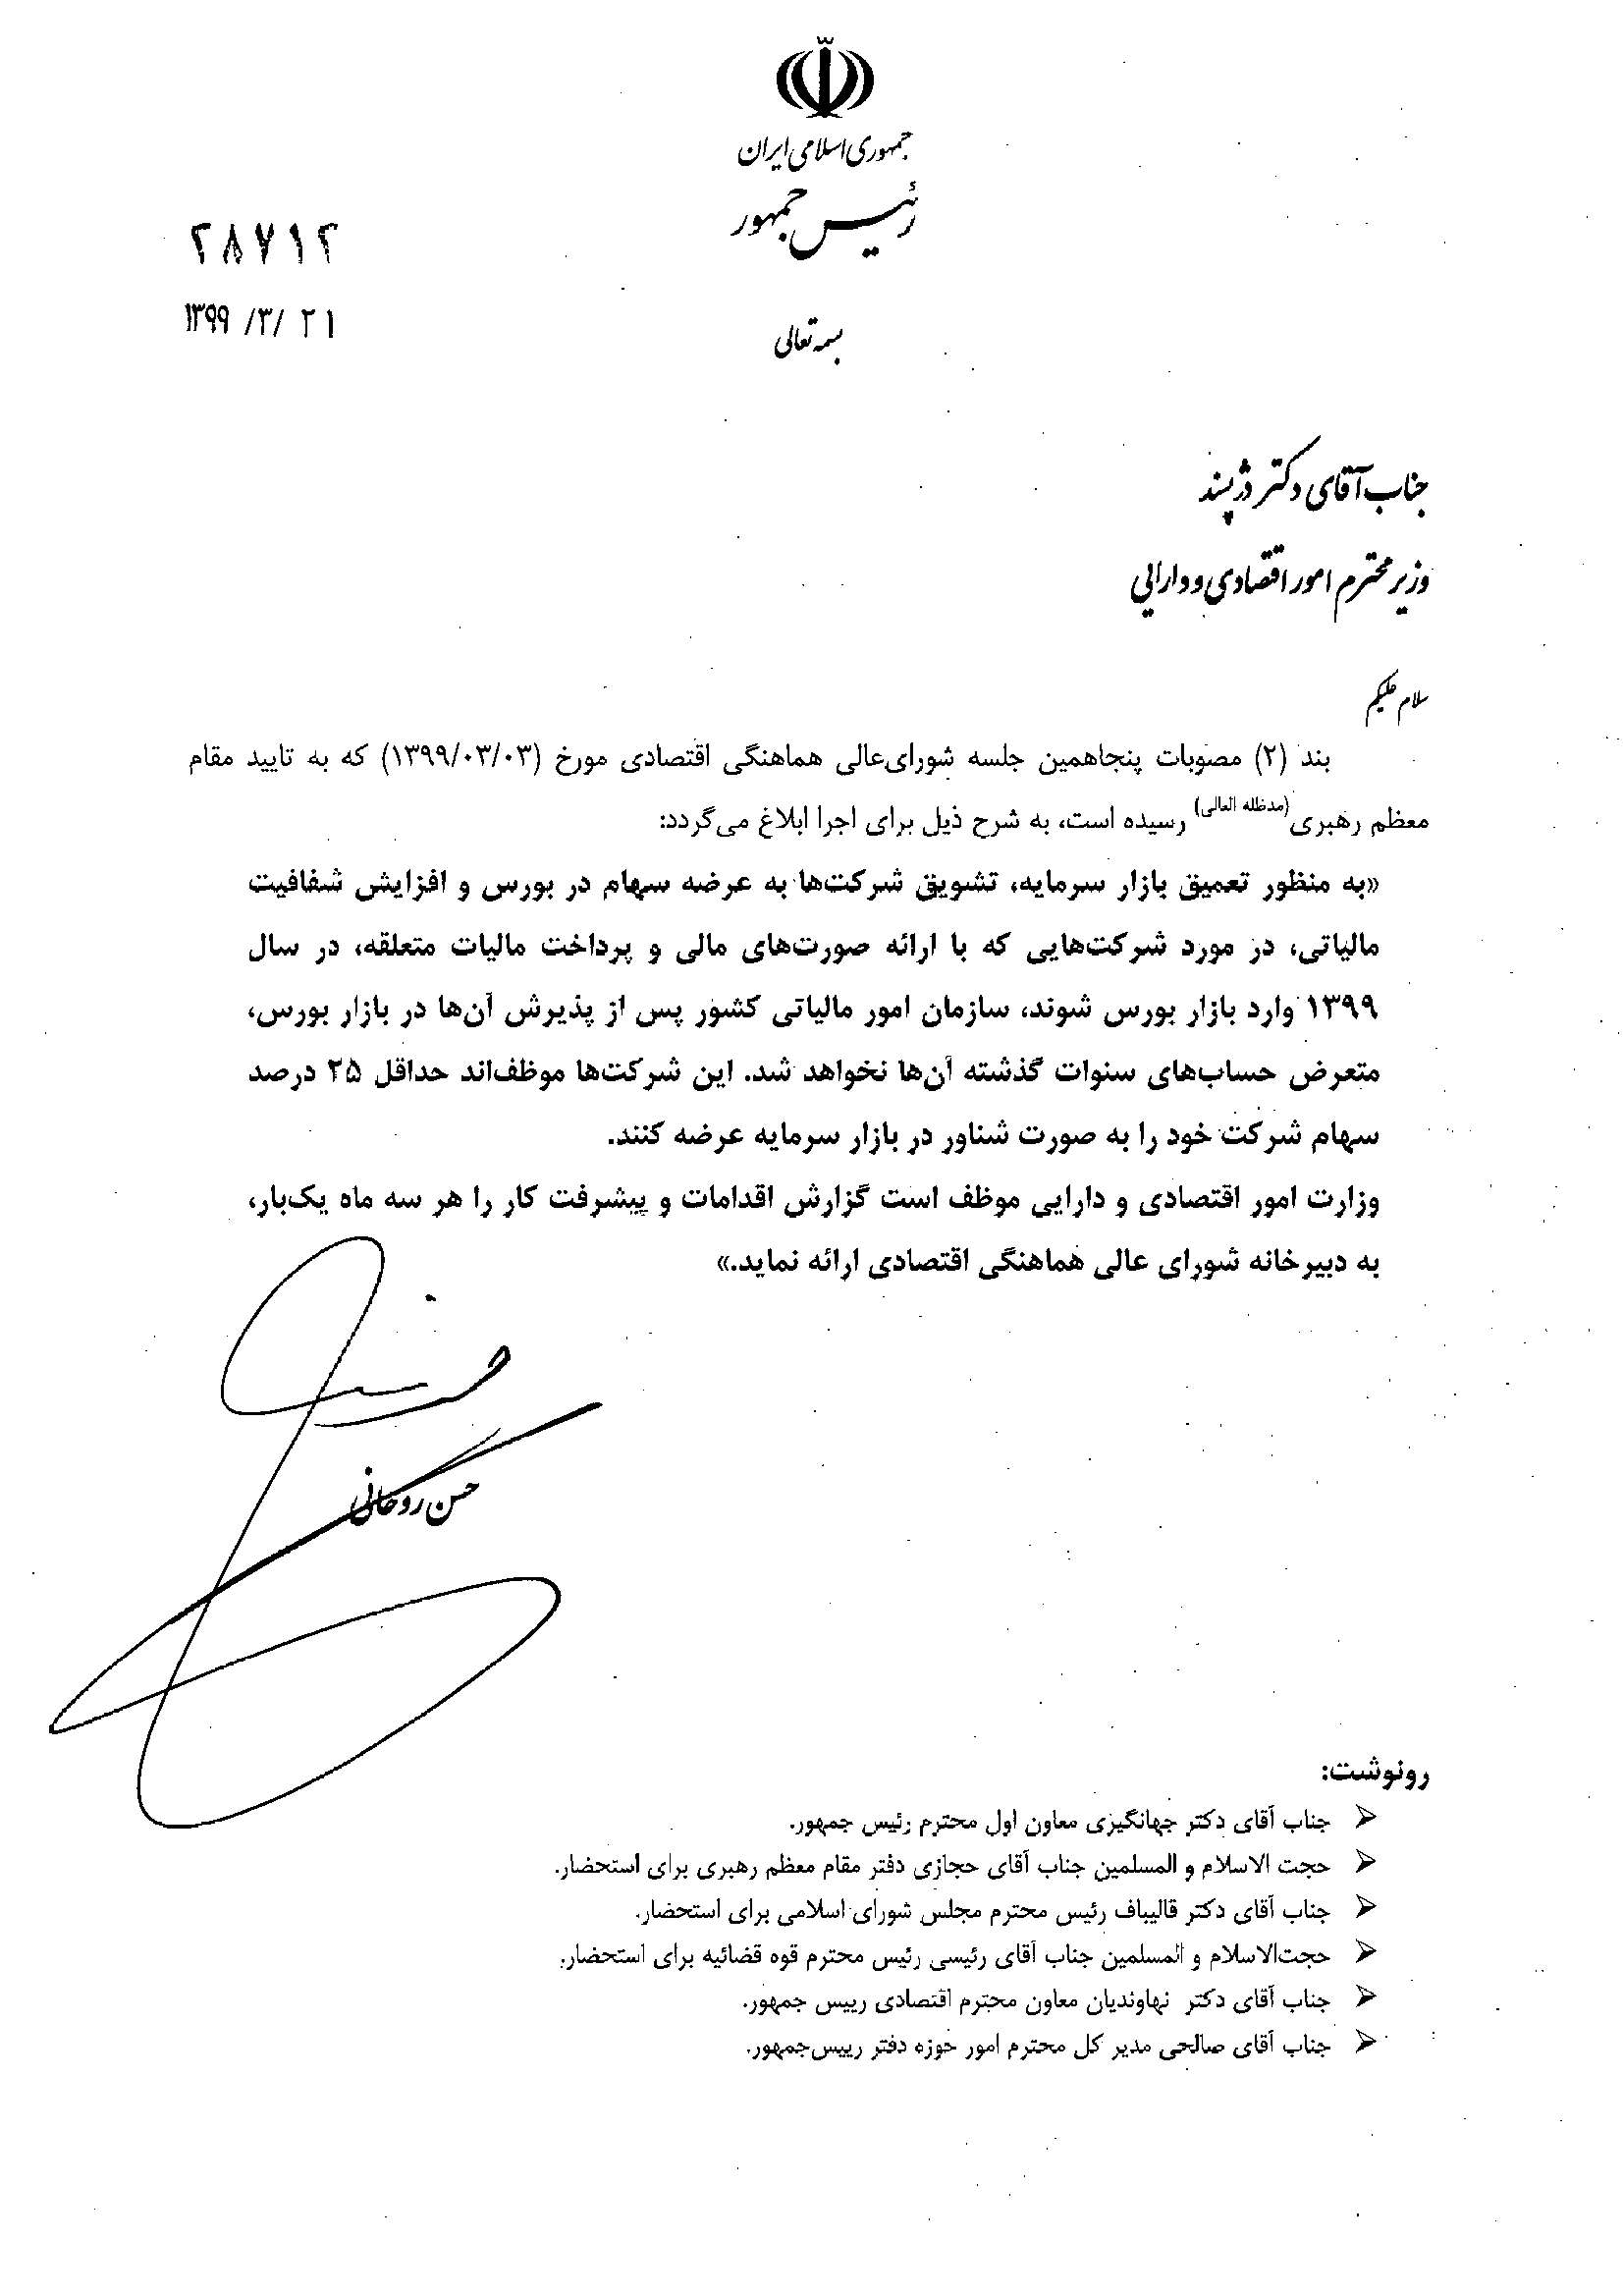 جمهوری اسلامی ایران
رئیس جمهور
۲۸۷۱۲
۱۳۹۹ /۳/ ۲۱
بسمه تعالی
جناب آقای دکتر دژپسند
وزیر محترم امور اقتصادی و دارایی
سلام علیکم
بند (۲) مصوبات پنجاهمین جلسه شورای‌عالی هماهنگی اقتصادی مورخ (۱۳۹۹/۰۳/۰۳) که به تایید مقام
معظم رهبری(مدظله العالی) رسیده است، به شرح ذیل برای اجرا ابلاغ می‌گردد:
«به منظور تعمیق بازار سرمایه، تشویق شرکت‌ها به عرضه سهام در بورس و افزایش شفافیت
مالیاتی، در مورد شرکت‌هایی که با ارائه صورت‌های مالی و پرداخت مالیات متعلقه، در سال
۱۳۹۹ وارد بازار بورس شوند، سازمان امور مالیاتی کشور پس از پذیرش آن‌ها در بازار بورس،
متعرض حساب‌های سنوات گذشته آن‌ها نخواهد شد. این شرکت‌ها موظف‌اند حداقل ۲۵ درصد
سهام شرکت خود را به صورت شناور در بازار سرمایه عرضه کنند.
وزارت امور اقتصادی و دارایی موظف است گزارش اقدامات و پیشرفت کار را هر سه ماه یک‌بار،
به دبیرخانه شورای عالی هماهنگی اقتصادی ارائه نماید.»
حسن روحانی
رونوشت:
➢ جناب آقای دکتر جهانگیری معاون اول محترم رئیس جمهور.
➢ حجت الاسلام و المسلمین جناب آقای حجازی دفتر مقام معظم رهبری برای استحضار.
➢ جناب آقای دکتر قالیباف رئیس محترم مجلس شورای اسلامی برای استحضار.
➢ حجت‌الاسلام و المسلمین جناب آقای رئیسی رئیس محترم قوه قضائیه برای استحضار.
➢ جناب آقای دکتر نهاوندیان معاون محترم اقتصادی رییس جمهور.
➢ جناب آقای صالحی مدیر کل محترم امور حوزه دفتر رییس‌جمهور.